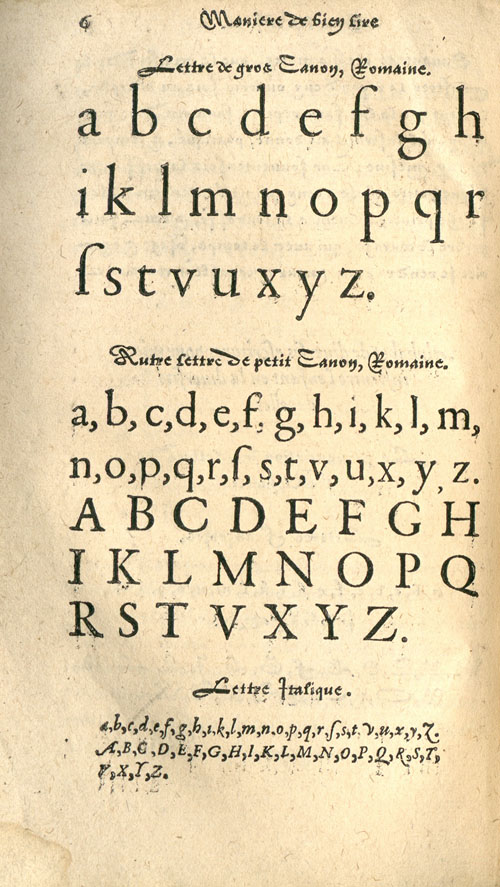 6 Maniere de bien lire
Lettre de gros Canon, Romaine.
a b c d e f g h
i k l m n o p q r
ſ s t v u x y z.
Autre lettre de petit Canon, Romaine.
a, b, c, d, e, f, g, h, i, k, l, m,
n, o, p, q, r, ſ, s, t, v, u, x, y, z.
A B C D E F G H
I K L M N O P Q
R S T V X Y Z.
Lettre Italique.
a, b, c, d, e, f, g, h, i, k, l, m, n, o, p, q, r, ſ, s, t, v, u, x, y, z.
A, B, C, D, E, F, G, H, I, K, L, M, N, O, P, Q, R, S, T,
V, X, Y, Z.